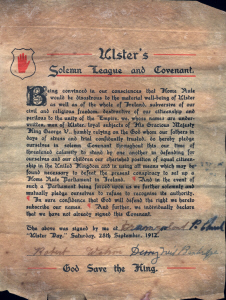 Ulster's
Solemn League and Covenant.
Being convinced in our consciences that Home Rule
would be disastrous to the material well-being of Ulster
as well as of the whole of Ireland, subversive of our
civil and religious freedom, destructive of our citizenship and
perilous to the unity of the Empire, we, whose names are under-
written, men of Ulster, loyal subjects of His Gracious Majesty
King George V., humbly relying on the God whom our fathers in
days of stress and trial confidently trusted, do hereby pledge
ourselves in solemn Covenant throughout this our time of
threatened calamity to stand by one another in defending for
ourselves and our children our cherished position of equal citizen-
ship in the United Kingdom and in using all means which may be
found necessary to defeat the present conspiracy to set up a
Home Rule Parliament in Ireland. And in the event of
such a Parliament being forced upon us we further solemnly and
mutually pledge ourselves to refuse to recognise its authority.
In sure confidence that God will defend the right we hereto
subscribe our names. And further, we individually declare
that we have not already signed this Covenant.
The above was signed by me at
"Ulster Day," Saturday, 28th September, 1912.
Robert
God Save the King.